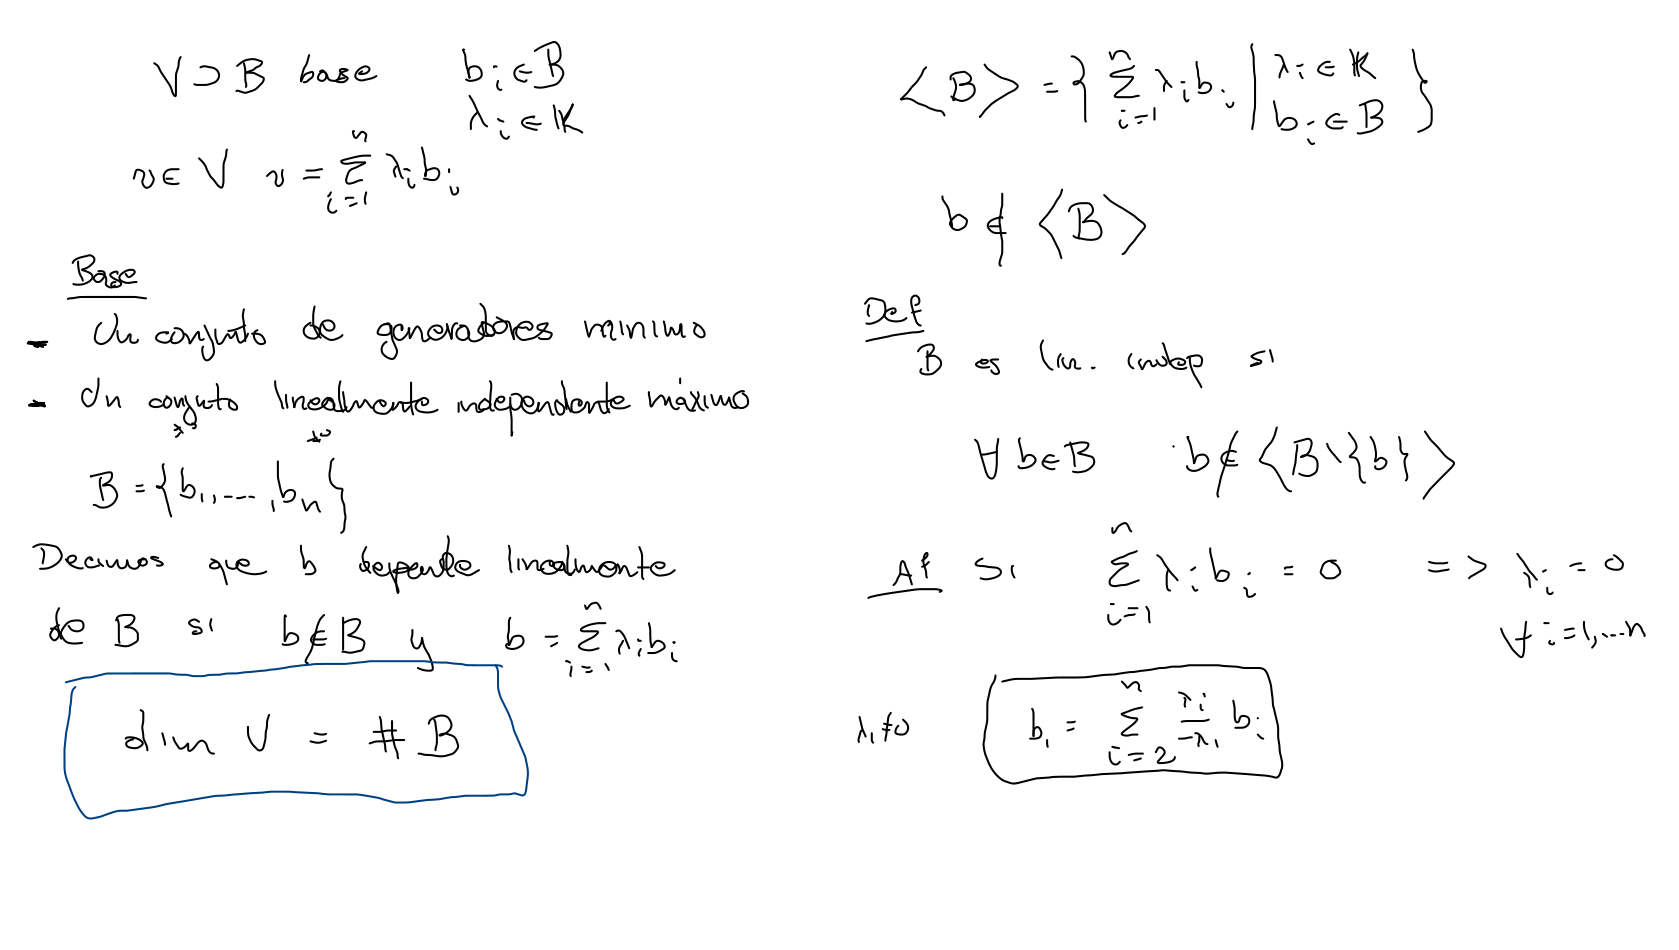 V ⊃ B base b_i ∈ B
λ_i ∈ K
v ∈ V v = Σ_{i=1}^{n} λ_i b_i
Base
- Un conjunto de generadores minimo
- Un conjunto linealmente independente máximo
B = {b_1, ..., b_n}
Decimos que b depende linealmente
de B si b ∉ B y b = Σ_{i=1}^{n} λ_i b_i
dim V = # B
<B> = { Σ_{i=1}^{n} λ_i b_i | λ_i ∈ K b_i ∈ B }
b ∉ <B>
Def
B es lin. indep si
∀ b ∈ B b ∉ <B \ {b}>
Af Si Σ_{i=1}^{n} λ_i b_i = 0 => λ_i = 0
∀ i = 1, ... n
λ_1 ≠ 0 b_1 = Σ_{i=2}^{n} λ_i / -λ_1 b_i